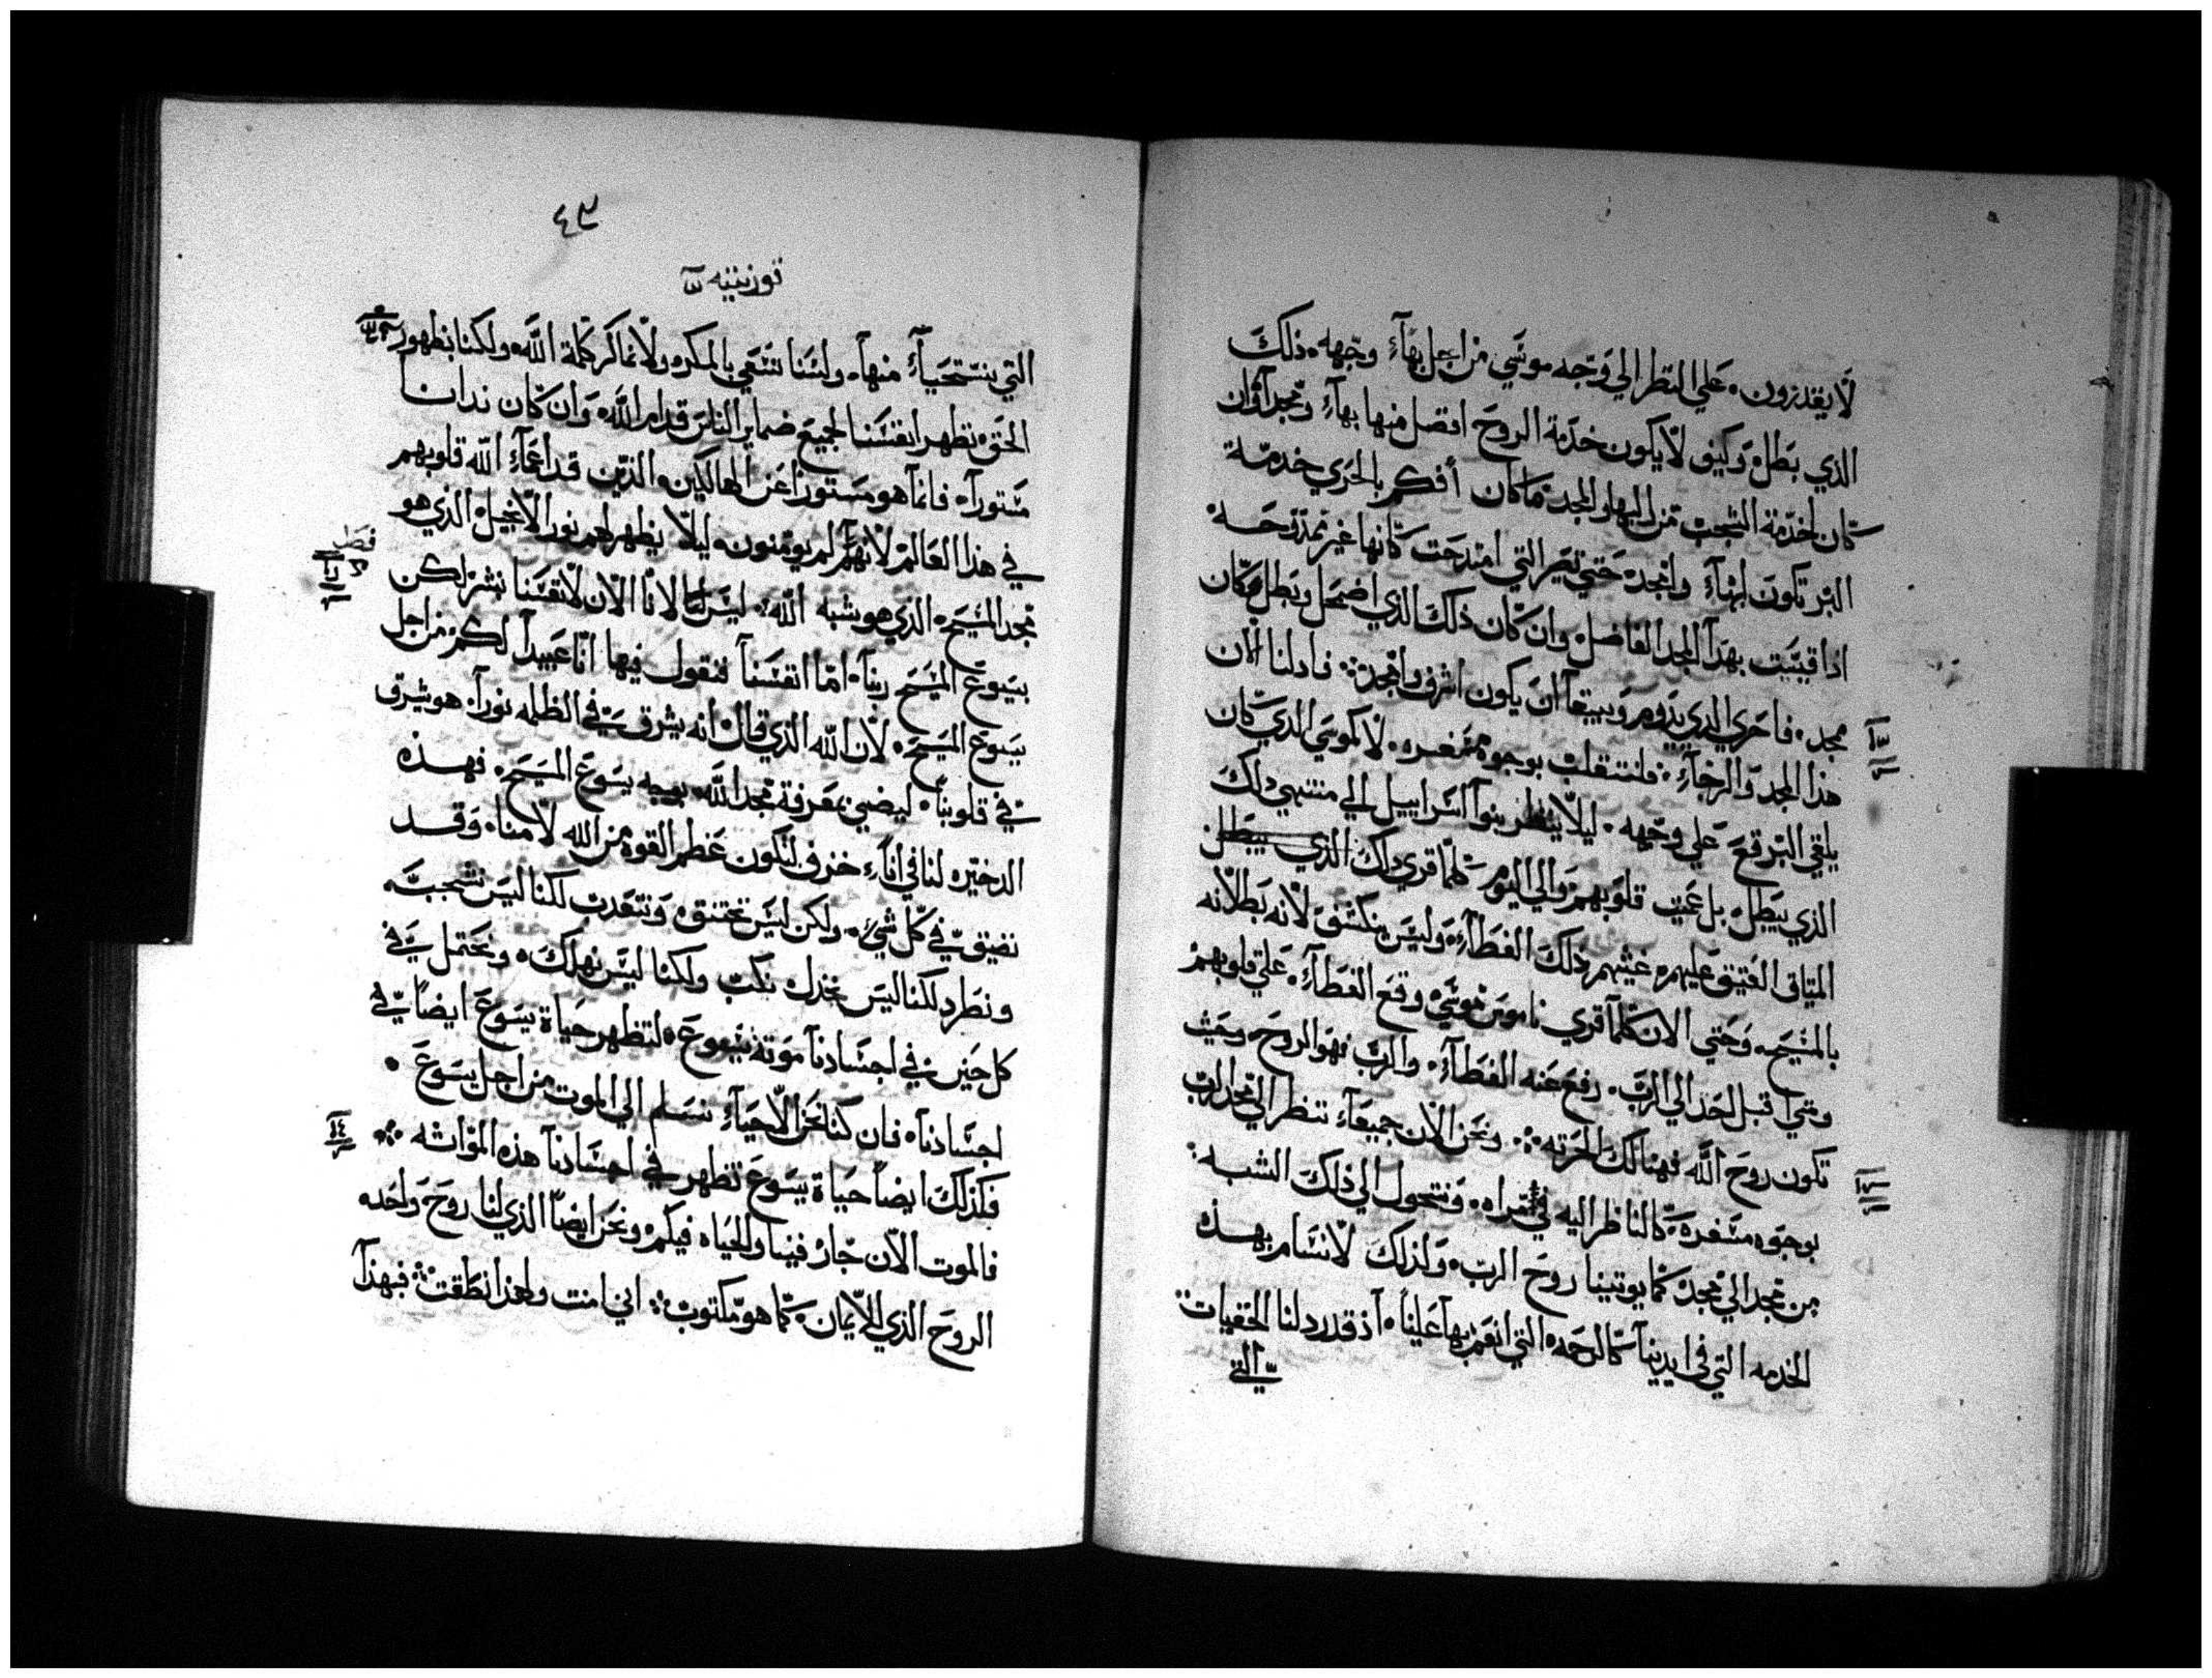 لايقدرون. علي النظر الي وجه موسي من اجل بهآء وجهه. ذلك
الذي بطل. وكيف لا يكون خدمة الروح افضل منها بهآء ومجدآ وان
كان لخدمة الشجب من البها والمجد ما كان أفكم بالحري خدمة
البر تكون لبهآء وامجد. حتي تصر التي امتدحت كانها غير ممتدحه.
اذا قيست بهدآ المجد الفاضل. وان كان ذلك الذي اضمحل وبطل وكان
مجد. فاحري الدي يدوم ويبيقآ ان يكون اشرف وامجد. فادلنا الان
هذا المجد والرخآء. فلنتقلب بوجوه مسفره. لا كموسي الدي كان
يلقي البرقع علي وجهه. ليلا ينظر بنوآ اسراييل الي منتهي دلك
الذي يبطل. بل عميت قلوبهم والي اليوم كلما قري دلك الذي يبطل
الميثاق العتيق عليهم. غشيهم ذلك الغطآء. وليس ينكشف لانه بطلانه
بالمسيح. وحتي الان كلمآ قري ناموس موسي وقع الغطآء. علي قلوبهم
ومتي اقبل احد الي الرب. رفع عنه الغطآء. والرب فهو الروح. وحيث
تكون روح الله فهنالك الحرية. ونحن الان جميعآء ننظر الي مجد الرب
بوجوه مسفرة. كالناظر اليه في مراه. ونتحول الي ذلك الشبه.
من مجد الي مجد. كما يوتينا روح الرب. ولذلك لا نسام بهذه
الخدمه التي في ايدينآ كالرحمه التي انعم بهآ علينآ. آذ قد ردلنا الخفيات
التي
٤٣
قورنتيه
التي يستحيآء منهآ. ولسنا نسعي بالمكر. ولا نماكر كلمة الله. ولكنا بظهور
الحق. نظهر انفسنا لجميع ضماير الناس قدام الله. وان كان ندانا
مستورآ. فانمآ هو مستورا عن الهالكين. الذين قد اعمآء الله قلوبهم
في هذا العالم لانهم لم يومنون. ليلا يظهر لهم نور الانجيل الذي هو
فصل
مجد المسيح. الذي هو شبه الله. ليس لنا لانا الان لانفسنا نبشر لكن
بيسوع المسيح ربنآ. امآ انفسنآ فنقول فيها انآ عبيدآ لكم من اجل
يسوع المسيح. لان الله الذي قال انه يشرق في الظلمه نورآ. هو شرق
في قلوبنآ. ليضي بمعرفة مجد الله. بوجه يسوع المسيح. فهذه
الدخيره لنا في انآء خزف لتكون عظم القوة من الله لا منا. وقد
نضيق في كل شي. ولكن ليس نختنق. ونتعدب لكنا ليس نشجب
ونطرد لكنا ليس نخدل نكب ولكنا ليس نهلك. ونحتمل في
كل حين في اجسادنآ موتة يسوع. لتظهر حياة يسوع ايضآ في
اجسادنآ. فان كنا نحن الاحيآء نسلم الي الموت من اجل يسوع.
فكذلك ايضآ حياة يسوع تظهر في اجسادنآ هذه المواته
١٤
فالموت الان جار فينا والحياه فيكم ونحن ايضآ الذي لنا روح واحده
الروح الذي للايمان. كما هو مكتوب. اني امنت ولهذا نطقت. فبهذآ